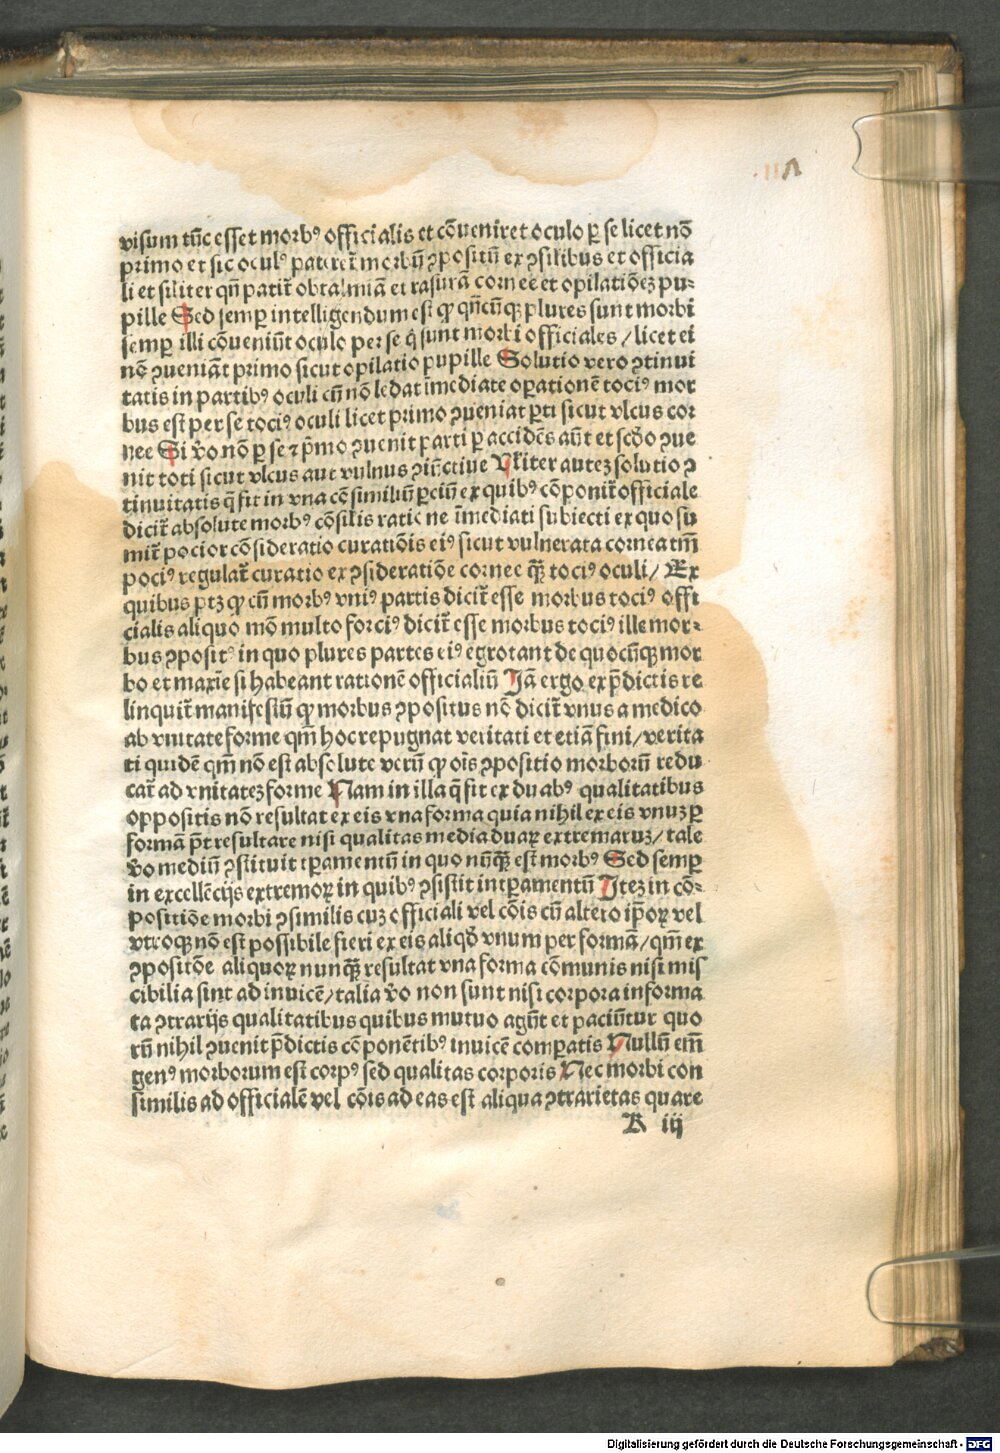 visum tūc esset morbꝰ officialis et cōveniret oculo ꝑ se licet nō
primo et sic oculꝰ pateret̄ morbū ꝯpositū ex ꝯsilibus et officia
li et siliter qn̄ patit̄ obtalmiā et rasurā cornee et opilatiōez pu⸗
pille Sed semꝑ intelligendum est ꝙ qn̄cūꝗ plures sunt morbi
semꝑ illi cōveniūt oculo per se q̇ sunt morbi officiales / licet ei
nō ꝯueniāt primo sicut opilatio pupille Solutio vero ꝯtinui
tatis in partibꝰ oculi cū nō ledat īmediate oꝑationē tociꝰ mor
bus est per se tociꝰ oculi licet primo ꝯueniat ꝑti sicut vlcus cor
nee Si v̄o nō ꝑ se ⁊ p̄mo ꝯuenit parti ꝑ accidēs aūt et scd̄o ꝯue
nit toti sicut vlcus aut vulnus ꝯiūctiue Vl̄iter autez solutio ꝯ
tinuitatis q̄ fit in vna cōsimiliū ꝑciū ex quibꝰ cōponit̄ officiale
dicit̄ absolute morbꝰ cōsilis ratione īmediati subiecti ex quo su
mit̄ pocior cōsideratio curatiōis eiꝰ sicut vulnerata cornea tm̄
pociꝰ regulat̄ curatio ex ꝯsideratiōe cornee qꝫ̄ tociꝰ oculi / Ex
quibus ptꝫ ꝙ cū morbꝰ vniꝰ partis dicit̄ esse morbus tociꝰ offi
cialis aliquo mō multo forciꝰ dicit̄ esse morbus tociꝰ ille mor⸗
bus ꝯpositꝰ in quo plures partes eiꝰ egrotant de quocūꝗ mor
bo et maxīe si habeant rationē officialiū Jā ergo ex p̄dictis re
linquit̄ manifestū ꝙ morbus ꝯpositus nō dicit̄ vnus a medico
ab vnitate forme qm̄ hoc repugnat veritati et etiā fini / verita
ti quidē qm̄ nō est absolute verū ꝙ oīs ꝯpositio morborū redu
cat̄ ad vnitatez forme Nam in illa q̄ fit ex duabꝰ qualitatibus
oppositis nō resultat ex eis vna forma quia nihil ex eis vnuz ꝑ
formā p̄t resultare nisi qualitas media duaꝝ extremaruz / tale
v̄o mediū ꝯstituit tꝑamentū in quo nūqꝫ̄ est morbꝰ Sed semꝑ
in excellēcijs extremoꝝ in quibꝰ ꝯsistit intꝑamentū Jtez in cō⸗
positiōe morbi ꝯsimilis cuz officiali vel cōis cū altero ip̄oꝝ vel
vtroꝗ nō est possibile fieri ex eis aliqd̄ vnum per formā / qm̄ ex
ꝯpositōe aliquoꝝ nunqꝫ̄ resultat vna forma cōmunis nisi mis
cibilia sint ad inuicē / talia v̄o non sunt nisi corpora informa
ta ꝯtrarijs qualitatibus quibus mutuo agūt et paciūtur quo
rū nihil ꝯuenit p̄dictis cōponētibꝰ inuicē comꝑatis Nullū em̄
genꝰ morborum est corpꝰ sed qualitas corporis Nec morbi con
similis ad officialē vel cōis ad eas est aliqua ꝯtrarietas quare
K iij
Digitalisierung gefördert durch die Deutsche Forschungsgemeinschaft - DFG